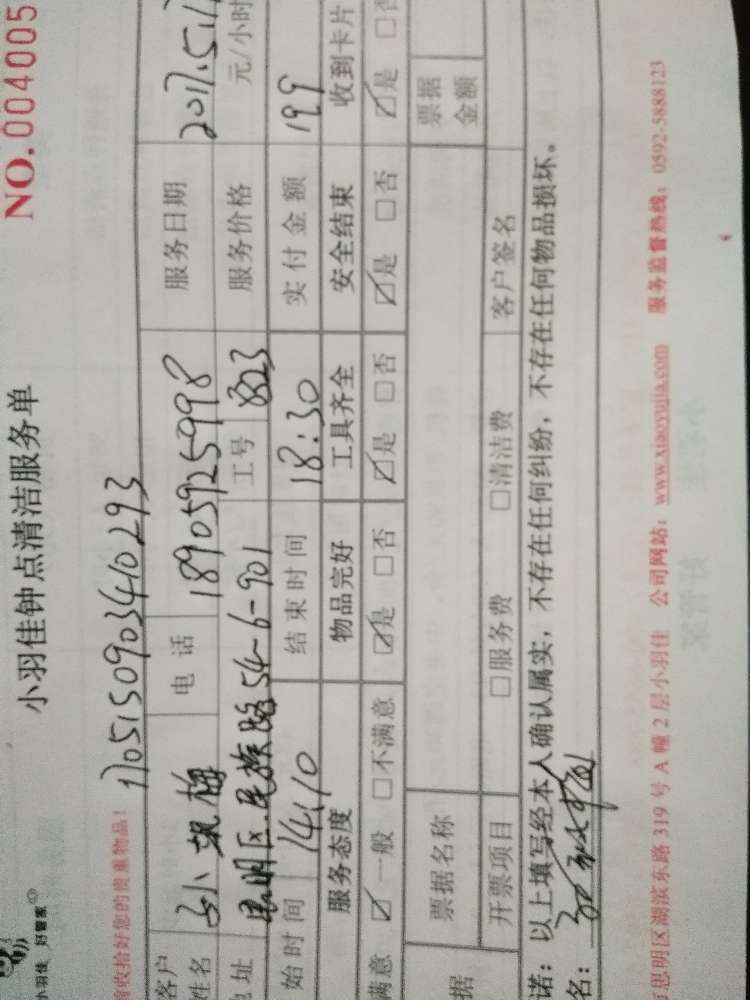 小羽佳 好管家
小羽佳钟点清洁服务单
NO.004005
请收拾好您的贵重物品!
1705150903410293
客户姓名 小 梅 电 话 18905925998 服务日期 2017.5.17
地址 思明区民族路54-6-901 工号 8823 服务价格 元/小时
始时间 14:10 结束时间 18:30 实付金额 199
服务态度 物品完好 工具齐全 安全结束 收到卡片
满意 ☑一般 □不满意 ☑是 □否 ☑是 □否 ☑是 □否 ☑是 □否
据 票据名称 票据金额
开票项目 □服务费 □清洁费 客户签名
诺:以上填写经本人确认属实,不存在任何纠纷,不存在任何物品损坏。
名:
思明区湖滨东路 319 号 A 幢 2 层小羽佳 公司网站:www.xiaoyujia.com 服务监督热线:0592-5888123